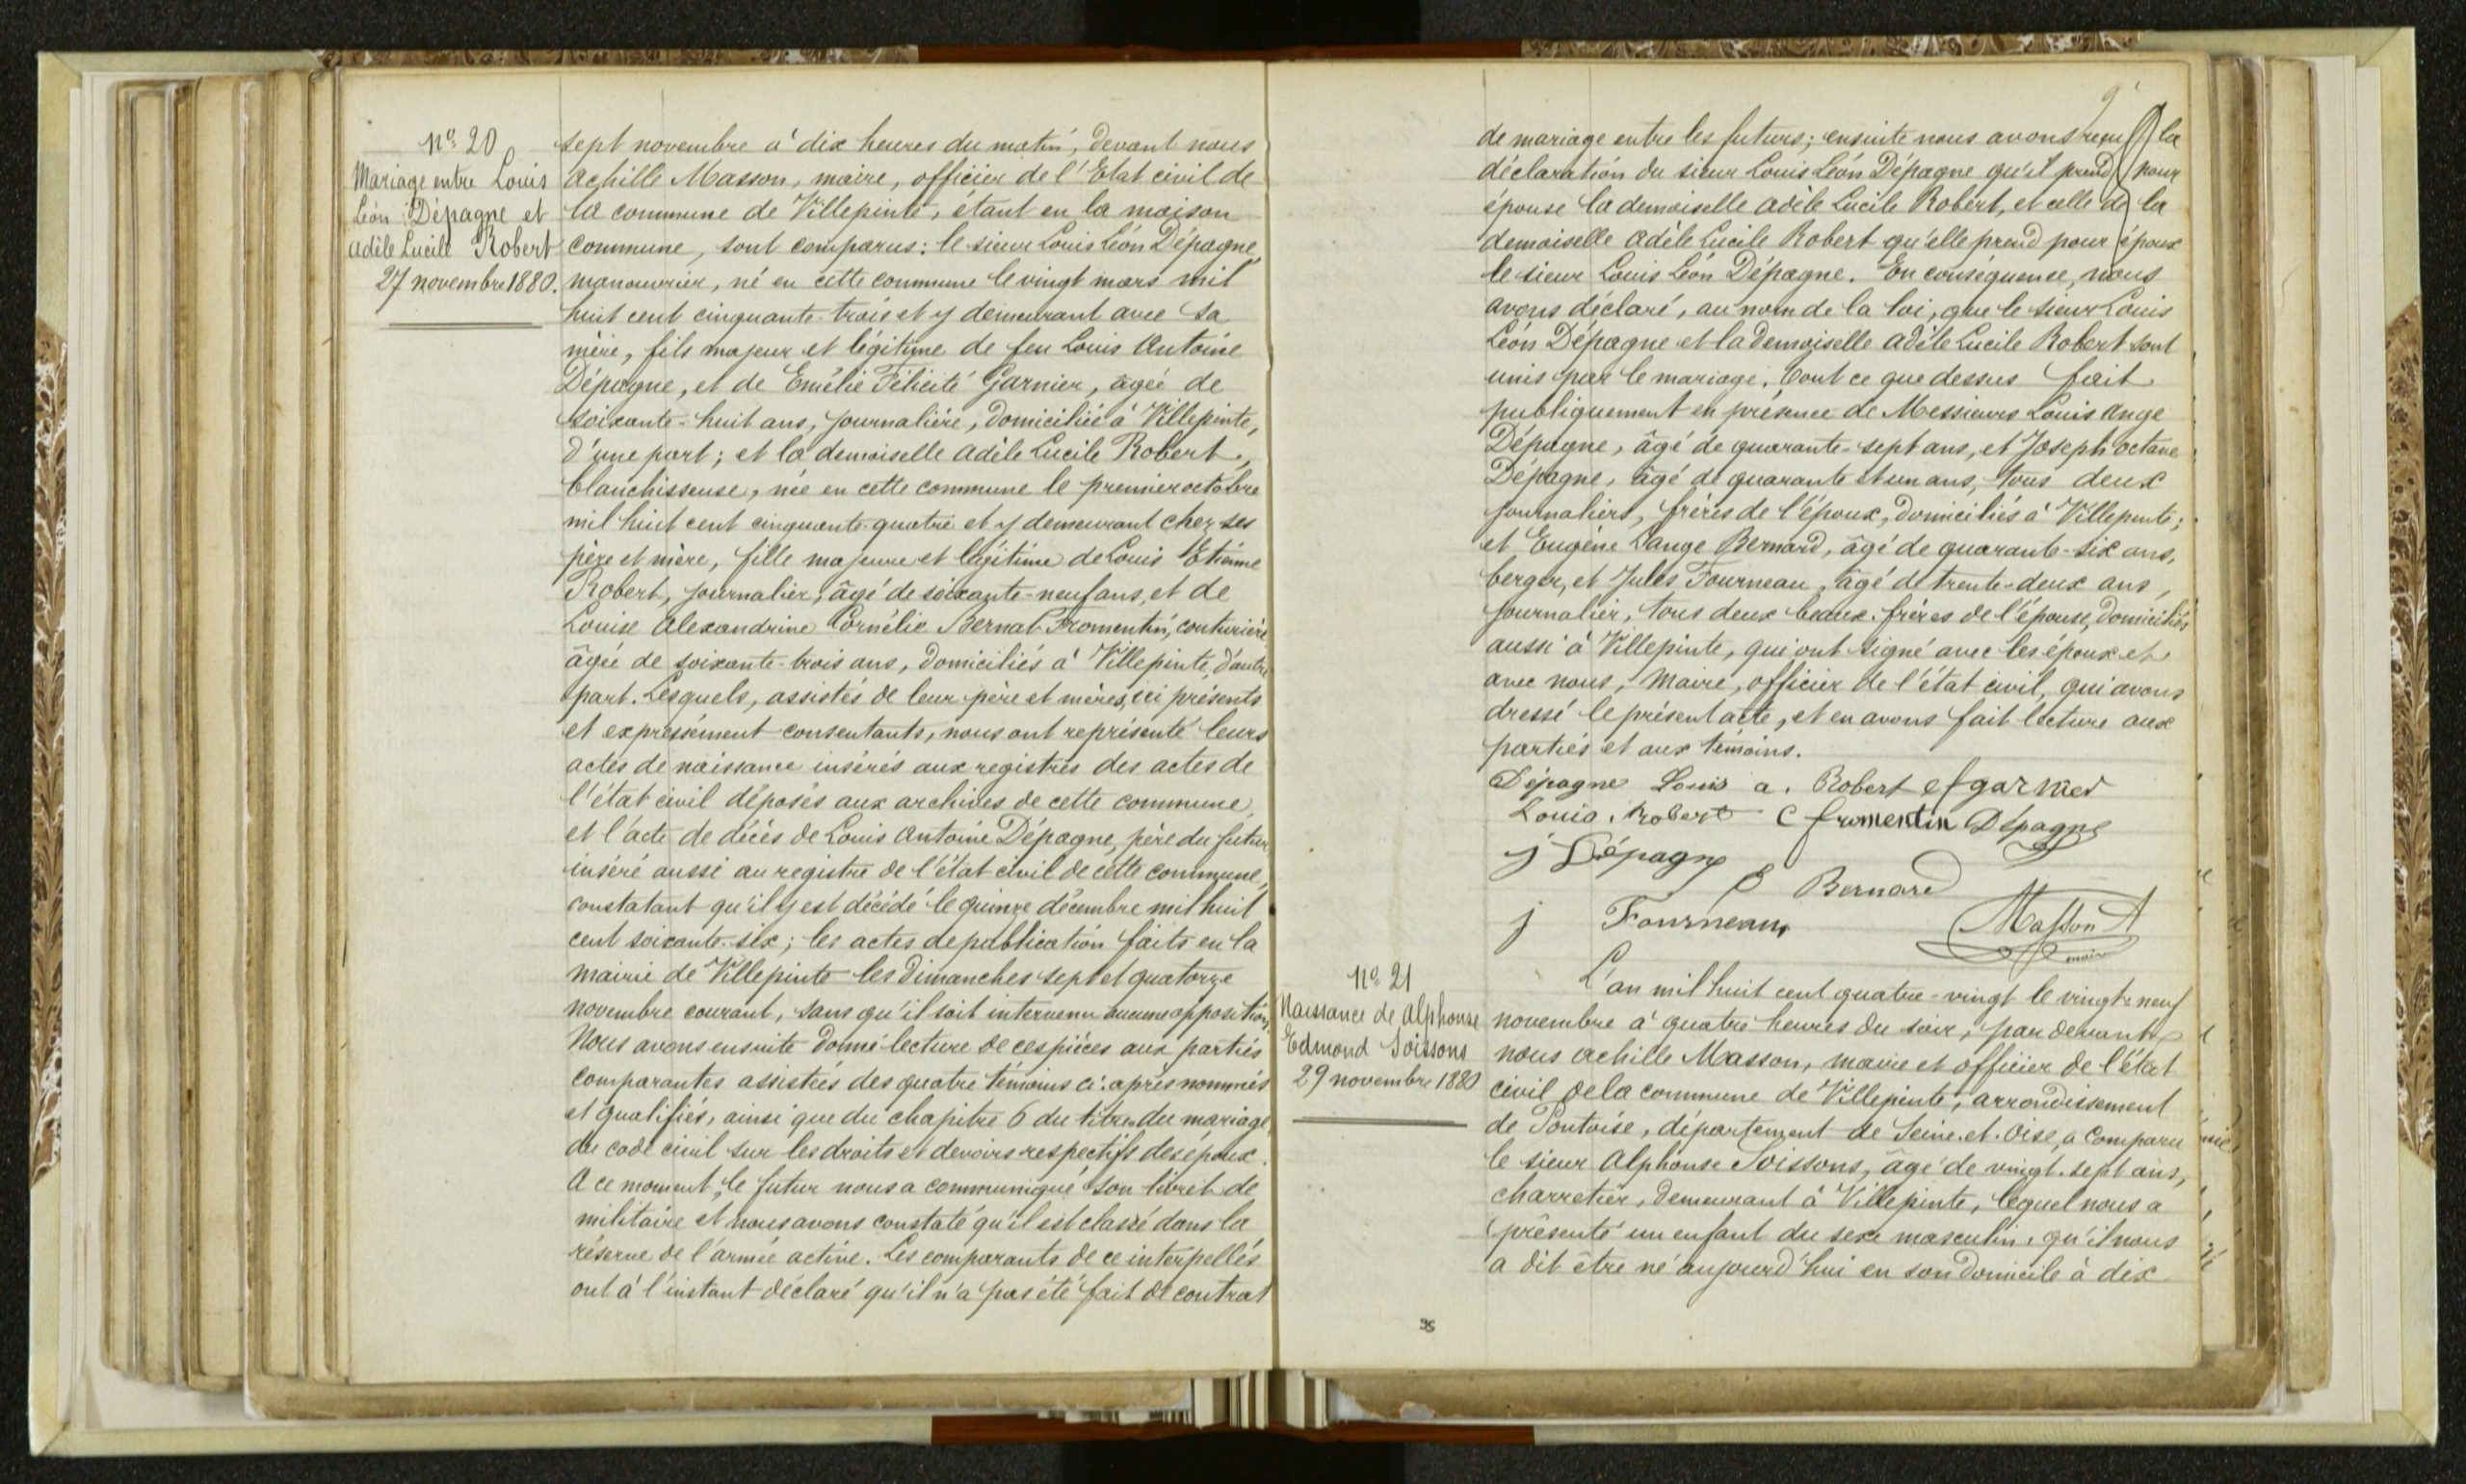 Nº 20
Mariage entre Louis
Léon Dépagne et
Adèle Lucile Robert
27 novembre 1880.
sept novembre à dix heures du matin, devant nous
Achille Masson, maire, officier de l'Etat civil de
la commune de Villepinte, étant en la maison
commune, sont comparus: le sieur Louis Léon Dépagne,
manouvrier, né en cette commune le vingt mars mil
huit cent cinquante-trois et y demeurant avec sa
mère, fils majeur et légitime de feu Louis Antoine
Dépagne, et de Emélie Félicité Garnier, âgée de
soixante-huit ans, journalière, domiciliée à Villepinte,
d'une part; et la demoiselle Adèle Lucile Robert,
blanchisseuse, née en cette commune le premier octobre
mil huit cent cinquante-quatre et y demeurant chez ses
père et mère, fille majeure et légitime de Louis Etienne
Robert, journalier, âgé de soixante-neuf ans, et de
Louise Alexandrine Cornélie Bernat Fromentin, couturière
âgée de soixante-trois ans, domiciliés à Villepinte, d'autre
part. Lesquels, assistés de leur père et mères, ici présents
et expressément consentants, nous ont représenté leurs
actes de naissance insérés aux registres des actes de
l'état civil déposés aux archives de cette commune,
et l'acte de décès de Louis Antoine Dépagne, père du futur,
inséré aussi au registre de l'état civil de cette commune,
constatant qu'il y est décédé le quinze décembre mil huit
cent soixante-six; les actes de publication faits en la
mairie de Villepinte les dimanches sept et quatorze
novembre courant, sans qu'il soit intervenu aucune opposition.
Nous avons ensuite donné lecture de ces pièces aux parties
comparantes assistées des quatre témoins ci-après nommés
et qualifiés, ainsi que du chapitre 6 du titre du mariage
du code civil sur les droits et devoirs respectifs des époux.
A ce moment, le futur nous a communiqué son livret de
militaire et nous avons constaté qu'il est classé dans la
réserve de l'armée active. Les comparants de ce interpellés
ont à l'instant déclaré qu'il n'a pas été fait de contrat
9
de mariage entre les futurs; ensuite nous avons reçu la
déclaration du sieur Louis Léon Dépagne qu'il prend pour
épouse la demoiselle Adèle Lucile Robert, et celle de la
demoiselle Adèle Lucile Robert qu'elle prend pour époux
le sieur Louis Léon Dépagne. En conséquence, nous
avons déclaré, au nom de la loi, que le sieur Louis
Léon Dépagne et la demoiselle Adèle Lucile Robert sont
unis par le mariage. Tout ce que dessus fait
publiquement en présence de Messieurs Louis Ange
Dépagne, âgé de quarante-sept ans, et Joseph Octave
Dépagne, âgé de quarante et un ans, tous deux
journaliers, frères de l'époux, domiciliés à Villepinte;
et Eugène Lange Bernard, âgé de quarante-six ans,
berger, et Jules Fourneau, âgé de trente-deux ans,
journalier, tous deux beaux-frères de l'épouse, domiciliés
aussi à Villepinte, qui ont signé avec les époux et
avec nous, Maire, officier de l'état civil, qui avons
dressé le présent acte, et en avons fait lecture aux
parties et aux témoins.
Dépagne Louis a. Robert ef garnier
Louis. Robert C fromentin Dépagne
j Dépagne
E Bernard
j Fourneau Masson A
maire
Nº 21
Naissance de Alphonse
Edmond Soissons
29 novembre 1880
L'an mil huit cent quatre-vingt le vingt-neuf
novembre à quatre heures du soir, par devant
nous Achille Masson, maire et officier de l'état
civil de la commune de Villepinte, arrondissement
de Pontoise, département de Seine-et-Oise, a comparu
le sieur Alphonse Soissons, âgé de vingt-sept ans,
charretier, demeurant à Villepinte, lequel nous a
présenté un enfant du sexe masculin, qu'il nous
a dit être né aujourd'hui en son domicile à dix